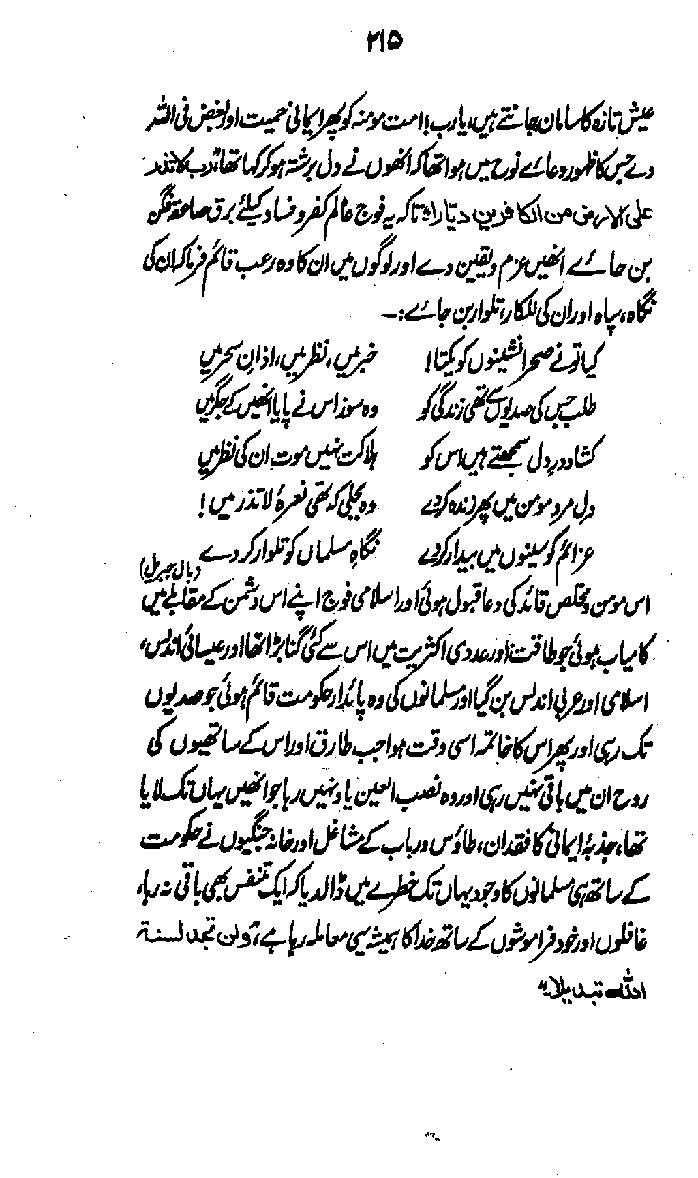 ۲۱۵
عیش تازہ کا سامان جانتے ہیں، یارب! امت مومنہ کو پھر ایمانی حمیت اور بغض فی اللہ
دے جس کا ظہور دعائے نوح میں ہوا تھا کہ انھوں نے دل برشتہ ہو کر کہا تھا رب لا تذر
علی الارض من الکافرین دیارا، تاکہ یہ فوج عالم کفر و فساد کیلئے برق صاعقہ فگن
بن جائے انھیں عزم و یقین دے اور لوگوں میں ان کا وہ رعب قائم فرما کہ ان کی
نگاہ، سپاہ اور ان کی للکار، تلوار بن جائے:۔
کیا تونے صحرا نشینوں کو یکتا! خبر میں، نظر میں، اذان سحر میں
طلب جس کی صدیوں سے تھی زندگی کو وہ سوز اس نے پایا انھیں کے جگر میں
کشاد در دل سمجھتے ہیں اس کو ہلاکت نہیں موت ان کی نظر میں
دل مرد مومن میں پھر زندہ کردے وہ بجلی کہ تھی نعرۂ لا تذر میں!
عزائم کو سینوں میں بیدار کردے نگاہِ مسلماں کو تلوار کردے
(بال جبریل)
اس مومن و مخلص قائد کی دعا قبول ہوئی اور اسلامی فوج اپنے اس دشمن کے مقابلے میں
کامیاب ہوئی جو طاقت اور عددی اکثریت میں اس سے کئی گنا بڑا تھا اور عیسائی اندلس،
اسلامی اور عربی اندلس بن گیا اور مسلمانوں کی وہ پائدار حکومت قائم ہوئی جو صدیوں
تک رہی اور پھر اس کا خاتمہ اسی وقت ہوا جب طارق اور اس کے ساتھیوں کی
روح ان میں باقی نہیں رہی اور وہ نصب العین یاد نہیں رہا جو انھیں یہاں تک لایا
تھا، جذبۂ ایمانی کا فقدان، طاؤس و رباب کے مشاغل اور خانہ جنگیوں نے حکومت
کے ساتھ ہی مسلمانوں کا وجود یہاں تک خطرے میں ڈالدیا کہ ایک متنفس بھی باقی نہ رہا،
غافلوں اور خود فراموشوں کے ساتھ خدا کا ہمیشہ یہی معاملہ رہا ہے، "ولن تجد لسنة
اللہ تبدیلا"